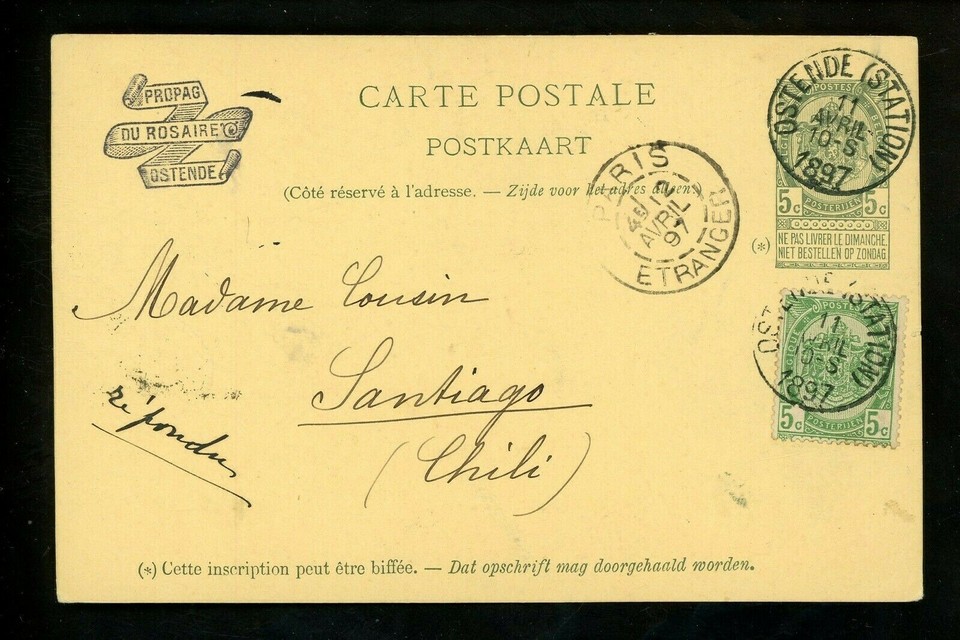 PROPAG
DU ROSAIRE
OSTENDE
CARTE POSTALE
POSTKAART
(Côté réservé à l'adresse. — Zijde voor het adres alleen
OSTENDE (STATION)
11
AVRIL
10-S
1897
POSTES
5c
POSTERIJEN
5c
(*)
NE PAS LIVRER LE DIMANCHE.
NIET BESTELLEN OP ZONDAG.
PARIS
12
AVRIL
97
ETRANGER
Madame Cousin
Santiago
(Chili)
répondu
OSTENDE (STATION)
11
AVRIL
10-S
1897
POSTES
5c
POSTERIJEN
5c
(*) Cette inscription peut être biffée. — Dat opschrift mag doorgehaald worden.